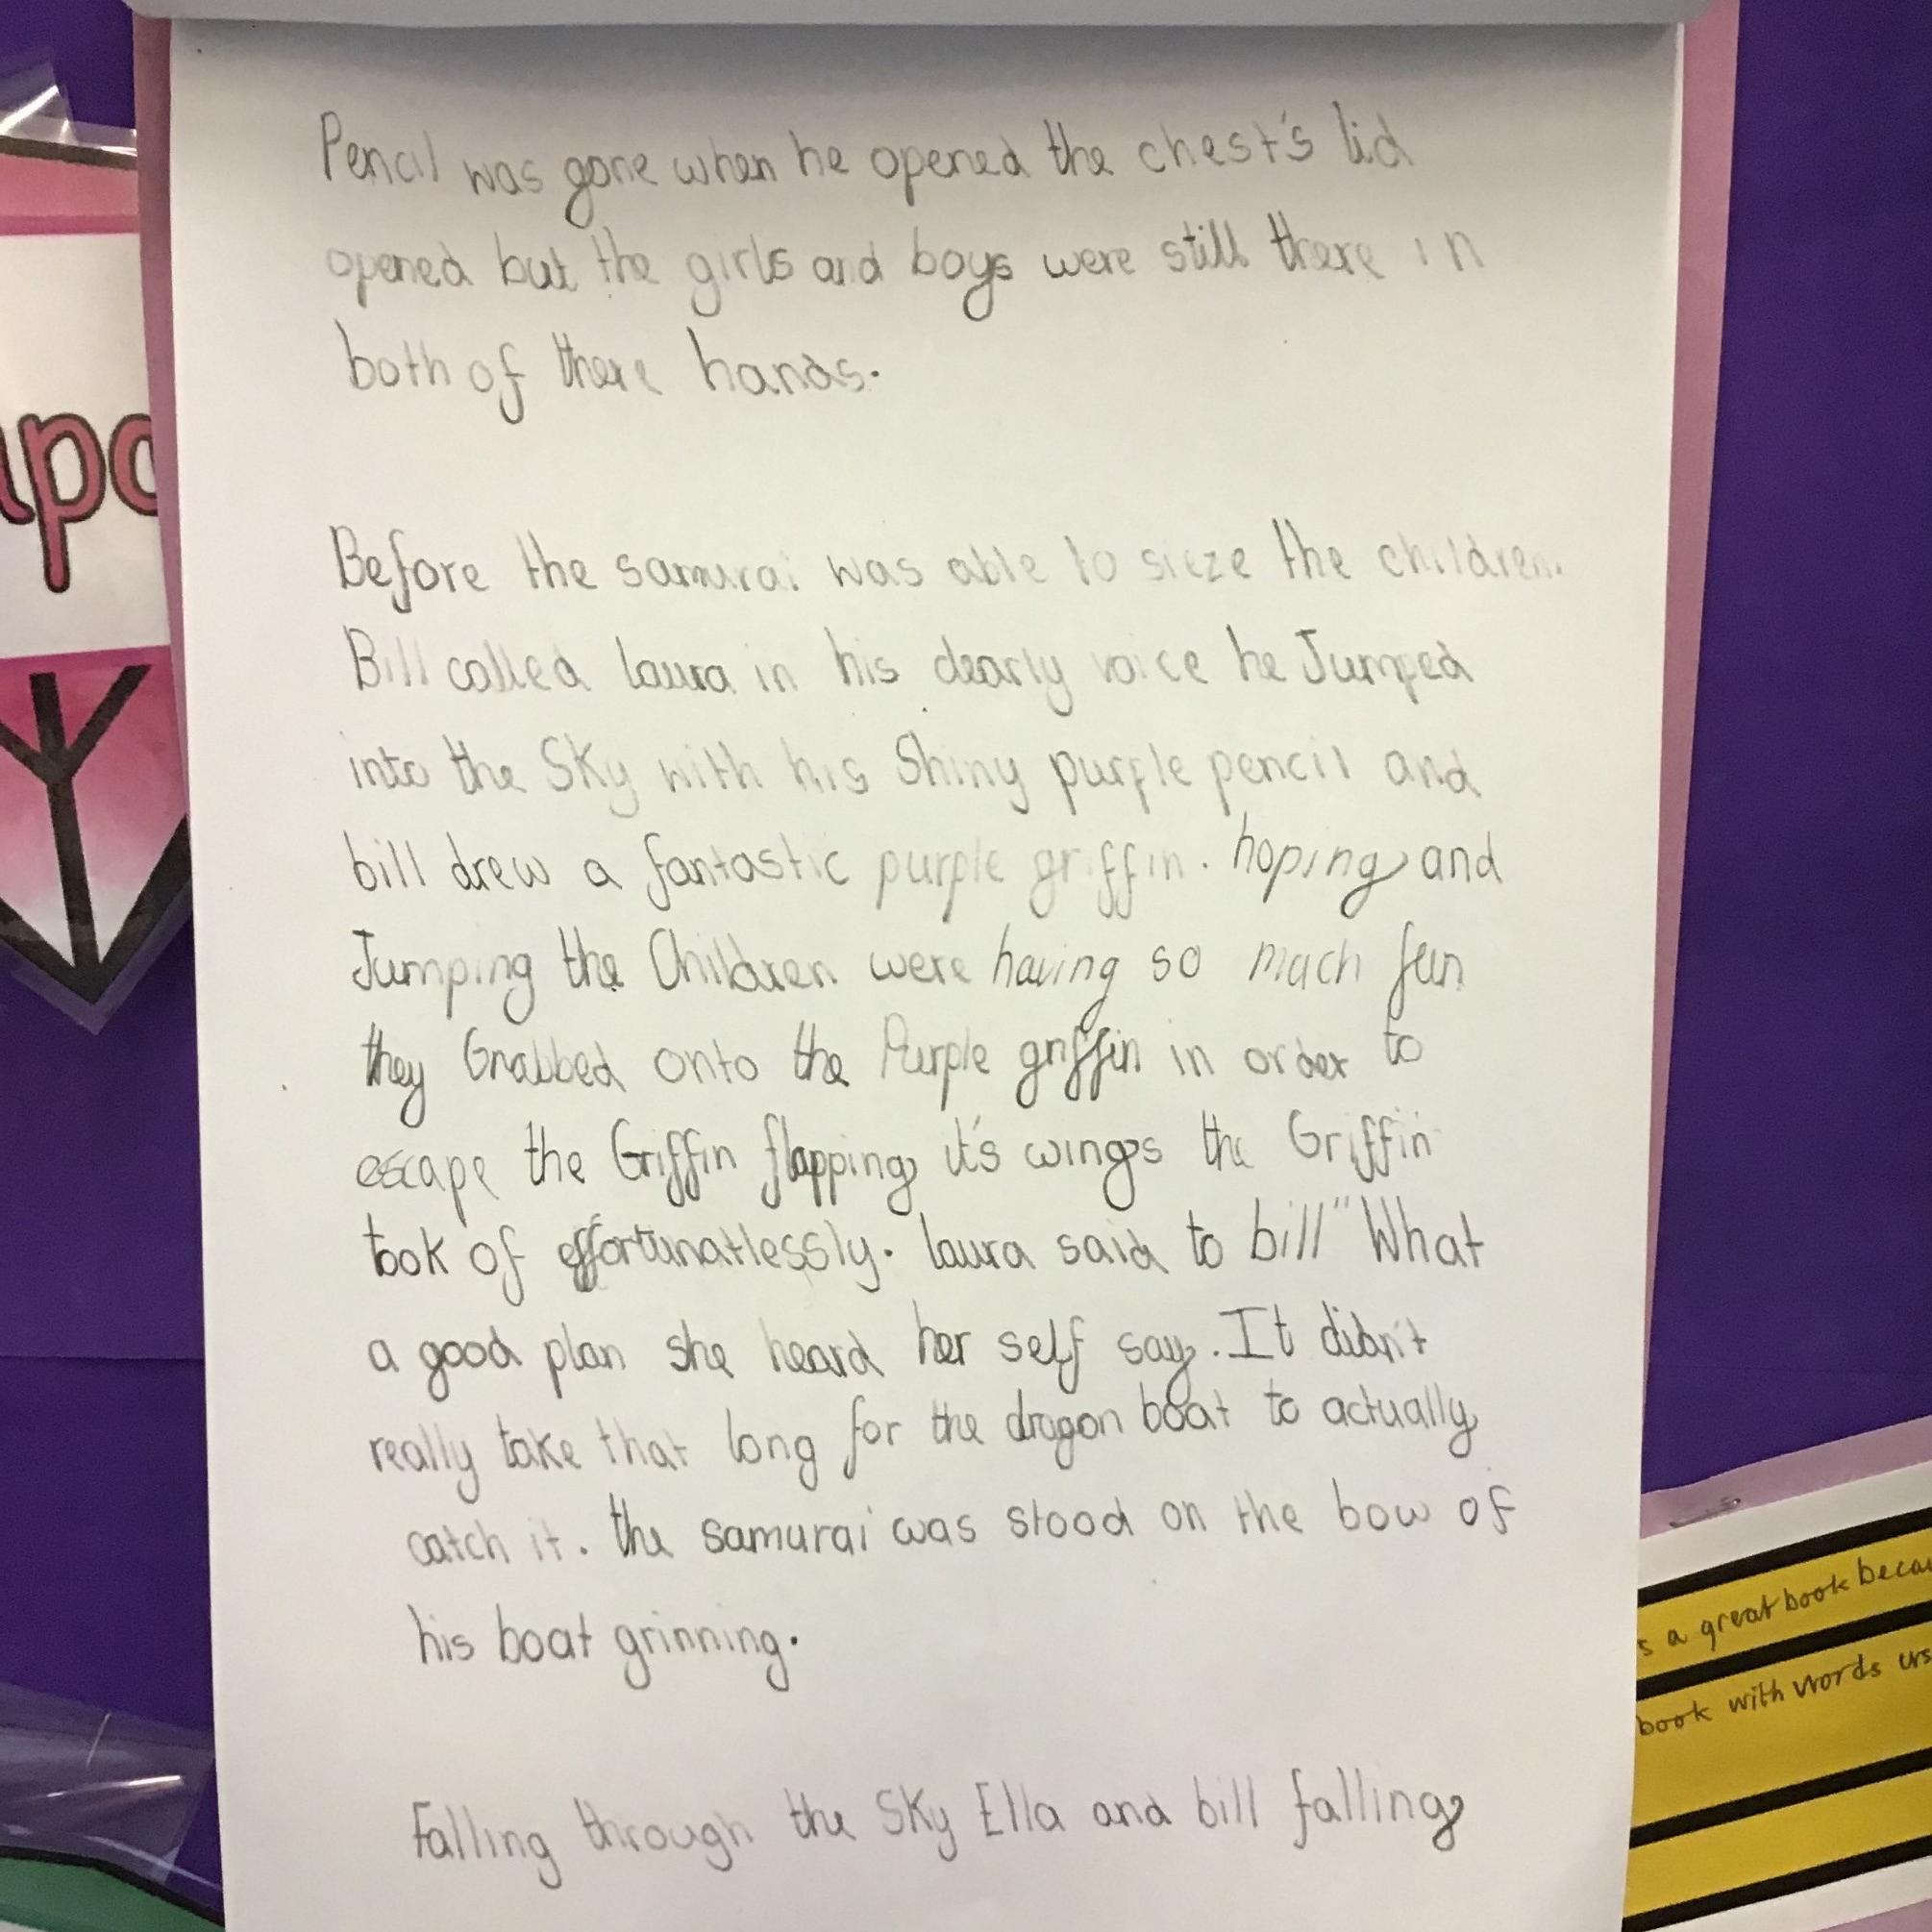 Pencil was gone when he opened the chest's lid
opened but the girls and boys were still there in
both of there hands.
Before the samurai was able to sieze the children.
Bill called laura in his dearly voice he Jumped
into the Sky with his Shiny purple pencil and
bill drew a fantastic purple griffin. hoping and
Jumping the Children were having so mach fun
they Grabbed onto the Purple griffin in order to
escape the Griffin flapping it's wings the Griffin
took of effortunatlessly. laura said to bill" What
a good plan she heard her self say. It didn't
really take that long for the dragon boat to actually
catch it. the samurai was stood on the bow of
his boat grinning.
Falling through the Sky Ella and bill falling
apo
s a great book becau
book with words us